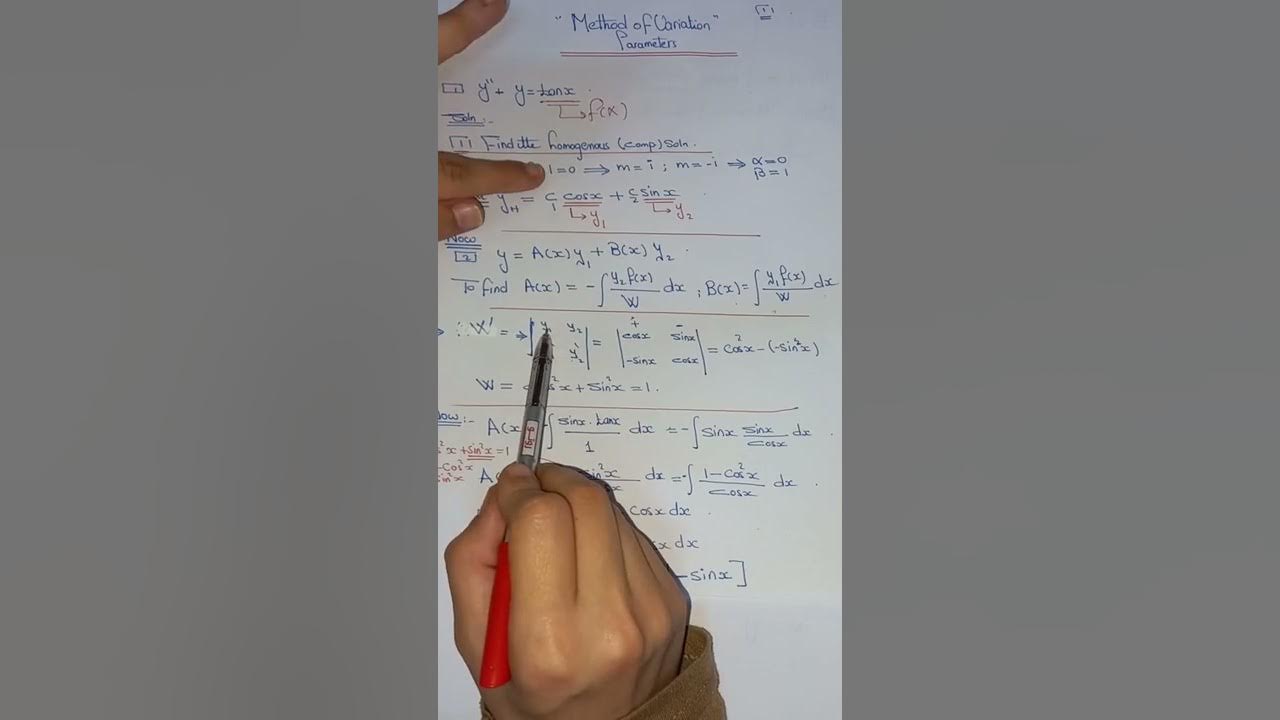 "Method of Variation" [1]
Parameters
[1] y" + y = tanx
↳ f(x)
Soln:-
[1] Find the homogenous (comp) Soln.
1=0 ⟹ m= i ; m= -i ⟹ α=0
β=1
y_H = c₁ cosx + c₂ sinx
↳ y₁ ↳ y₂
Now
[2] y = A(x) y₁ + B(x) y₂
To find A(x) = -∫ y₂ f(x)/W dx ; B(x) = ∫ y₁ f(x)/W dx
W' = ⇒ | y₂ ; y₂' | = | cosx sinx ; -sinx cosx | = cos²x - (-sin²x)
+ -
W = cos²x + sin²x = 1.
Now:- A(x ∫ sinx . tanx / 1 dx = -∫ sinx sinx/cosx dx
²x + sin²x = 1
-cos²x
sin²x
A( sin²x dx = -∫ 1-cos²x / cosx dx
cosx dx
x dx
- sinx ]